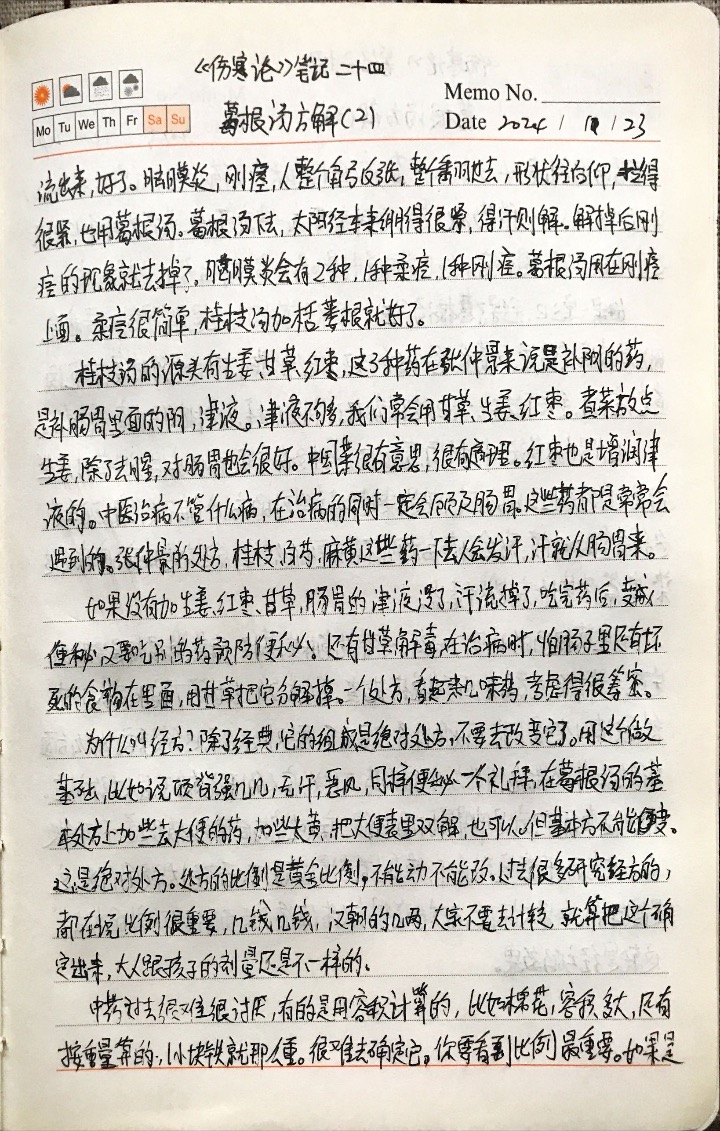 《伤寒论》笔记二十四
Memo No.
葛根汤方解(2)
Date 2024 / 11 / 23
Mo Tu We Th Fr Sa Su
流出来,好了。脑膜炎,刚痉,人整个角弓反张,整个翻过去,形状往后仰,拉得
很紧,也用葛根汤。葛根汤下去,太阳经本来绷得很紧,得汗则解。解掉后刚
痉的现象就去掉了。脑膜炎会有2种,1种柔痉,1种刚痉。葛根汤用在刚痉
上面。柔痉很简单,桂枝汤加栝蒌根就好了。
桂枝汤的源头有生姜、甘草、红枣,这3种药在张仲景来说是补阴的药,
是补肠胃里面的阴,津液。津液不够多,我们常会用甘草、生姜、红枣。煮菜放点
生姜,除了去腥,对肠胃也会很好。中国菜很有意思,很有病理。红枣也是增润津
液的。中医治病不管什么病,在治病的同时一定会顾及肠胃。这些药都是常常会
遇到的。张仲景的处方,桂枝、白芍、麻黄这些药一下去人会发汗,汗就从肠胃来。
如果没有加生姜、红枣、甘草,肠胃的津液没了,汗流掉了,吃完药后,变成
便秘又要吃别的药预防便秘。还有甘草解毒,在治病时,怕肠子里还有坏
死的食物在里面,用甘草把它分解掉。一个处方,看起来几味药,考虑得很筹密。
为什么叫经方?除了经典,它的组成是绝对处方,不要去改变它了。用这个做
基础,比如说项背强几几,无汗,恶风,同样便秘一个礼拜,在葛根汤的基
本处方上加些去大便的药,加些大黄,把大便表里双解,也可以。但基本方不能变。
这是绝对处方。处方的比例是黄金比例,不能动不能改。过去很多研究经方的,
都在说比例很重要,几钱几钱,汉朝的几两,大家不要去计较,就算把这个确
定出来,大人跟孩子的剂量还是不一样的。
中药过去很难很讨厌,有的是用容积计算的,比如棉花,容积多大,还有
按重量算的,1小块铁就那么重。很难去确定它。你要看到比例最重要。如果是